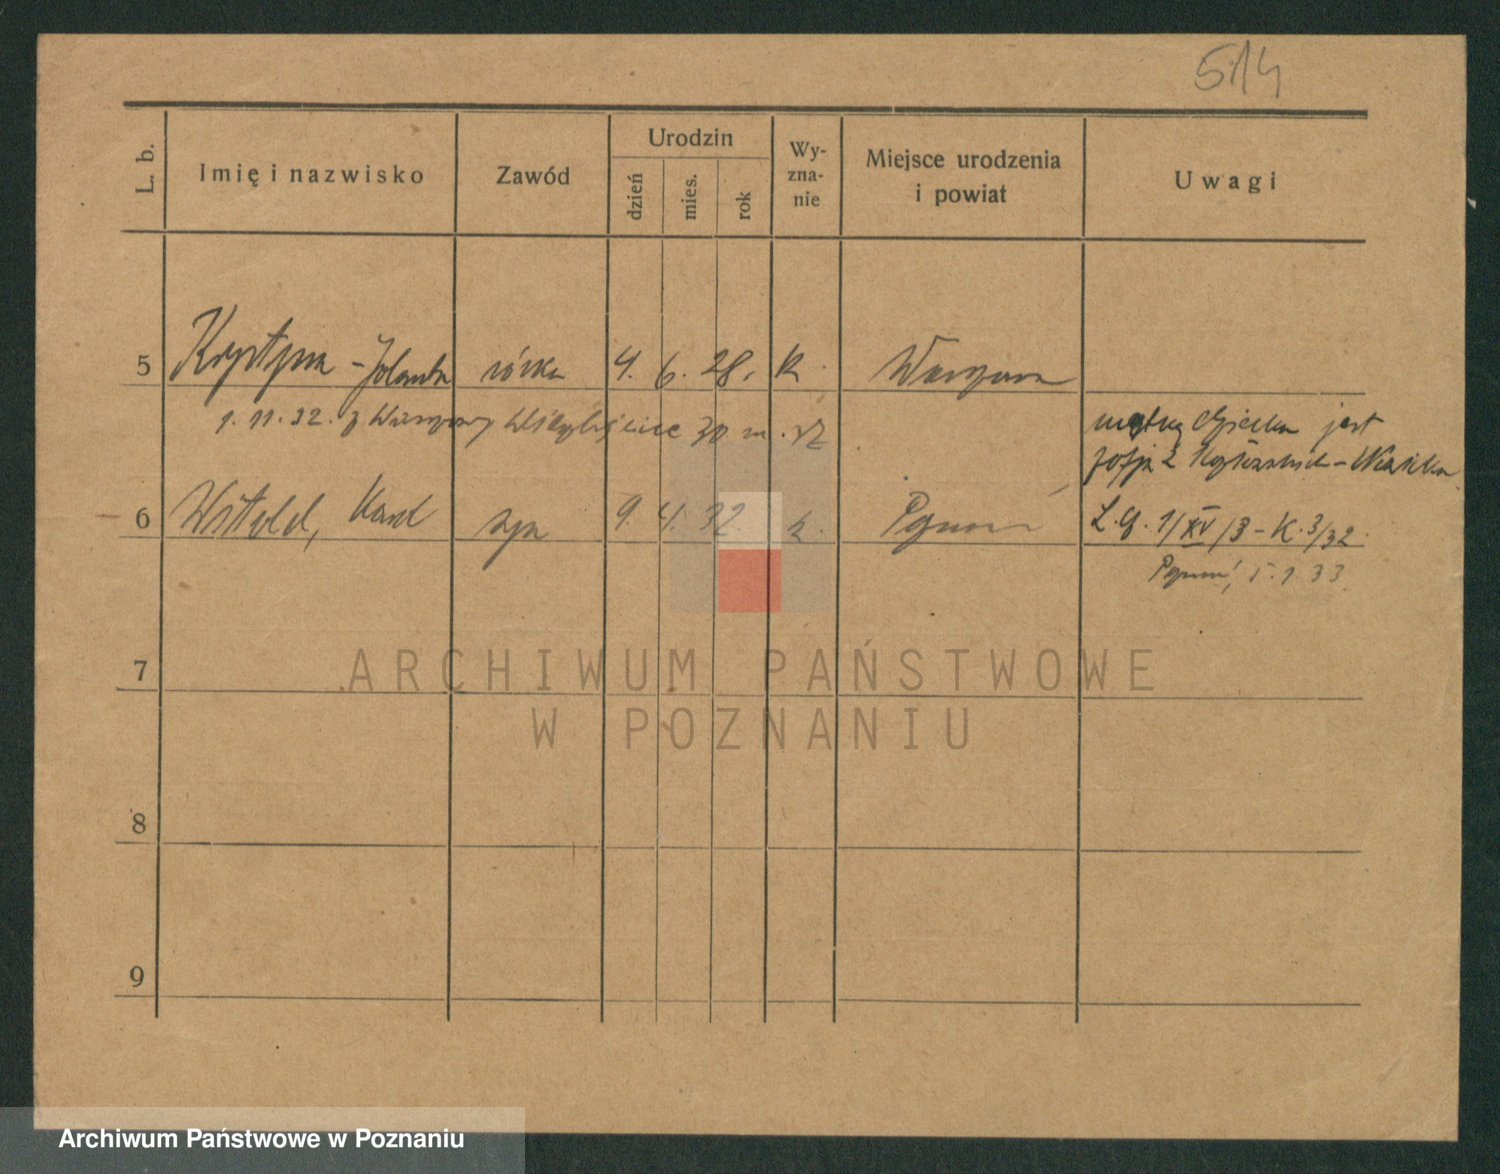 514
L. b. Imię i nazwisko Zawód Urodzin dzień mies. rok Wy-zna-nie Miejsce urodzenia i powiat Uwagi
5 Krystyna - Jolanta córka 4. 6. 28. K. Warszawa
1. 11. 32. z Warszawy 30 m.
matką dziecka jest
Zofja z
6 Witold, Karol syn 9. 4. 32 k. Poznań L. q. 1/XV/3 - K. 3/32.
Poznań, 5. 1. 33
7
ARCHIWUM PAŃSTWOWE
W POZNANIU
8
9
Archiwum Państwowe w Poznaniu